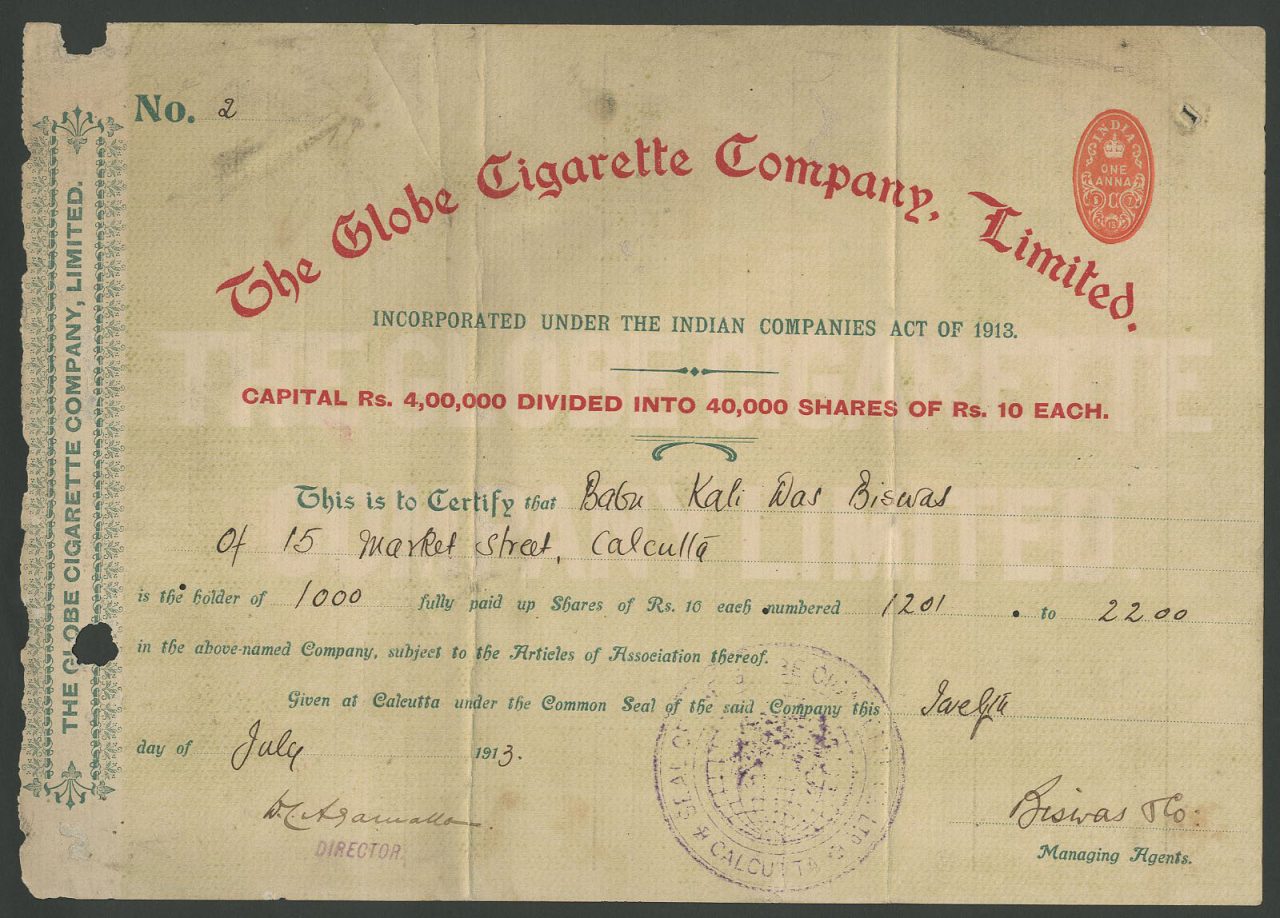 No. 2
The Globe Cigarette Company, Limited.
INDIA
ONE
ANNA
C
I
INCORPORATED UNDER THE INDIAN COMPANIES ACT OF 1913.
CAPITAL Rs. 4,00,000 DIVIDED INTO 40,000 SHARES OF Rs. 10 EACH.
This is to Certify that Babu Kali Das Biswas
Of 15 Market Street, Calcutta
is the holder of 1000 fully paid up Shares of Rs. 10 each numbered 1201 to 2200
in the above-named Company, subject to the Articles of Association thereof.
Given at Calcutta under the Common Seal of the said Company this Twelfth
day of July 1913.
DIRECTOR.
Biswas & Co.
Managing Agents.
SEAL OF
LTD
CALCUTTA
THE GLOBE CIGARETTE COMPANY, LIMITED.
THE GLOBE CIGARETTE
COMPANY LIMITED